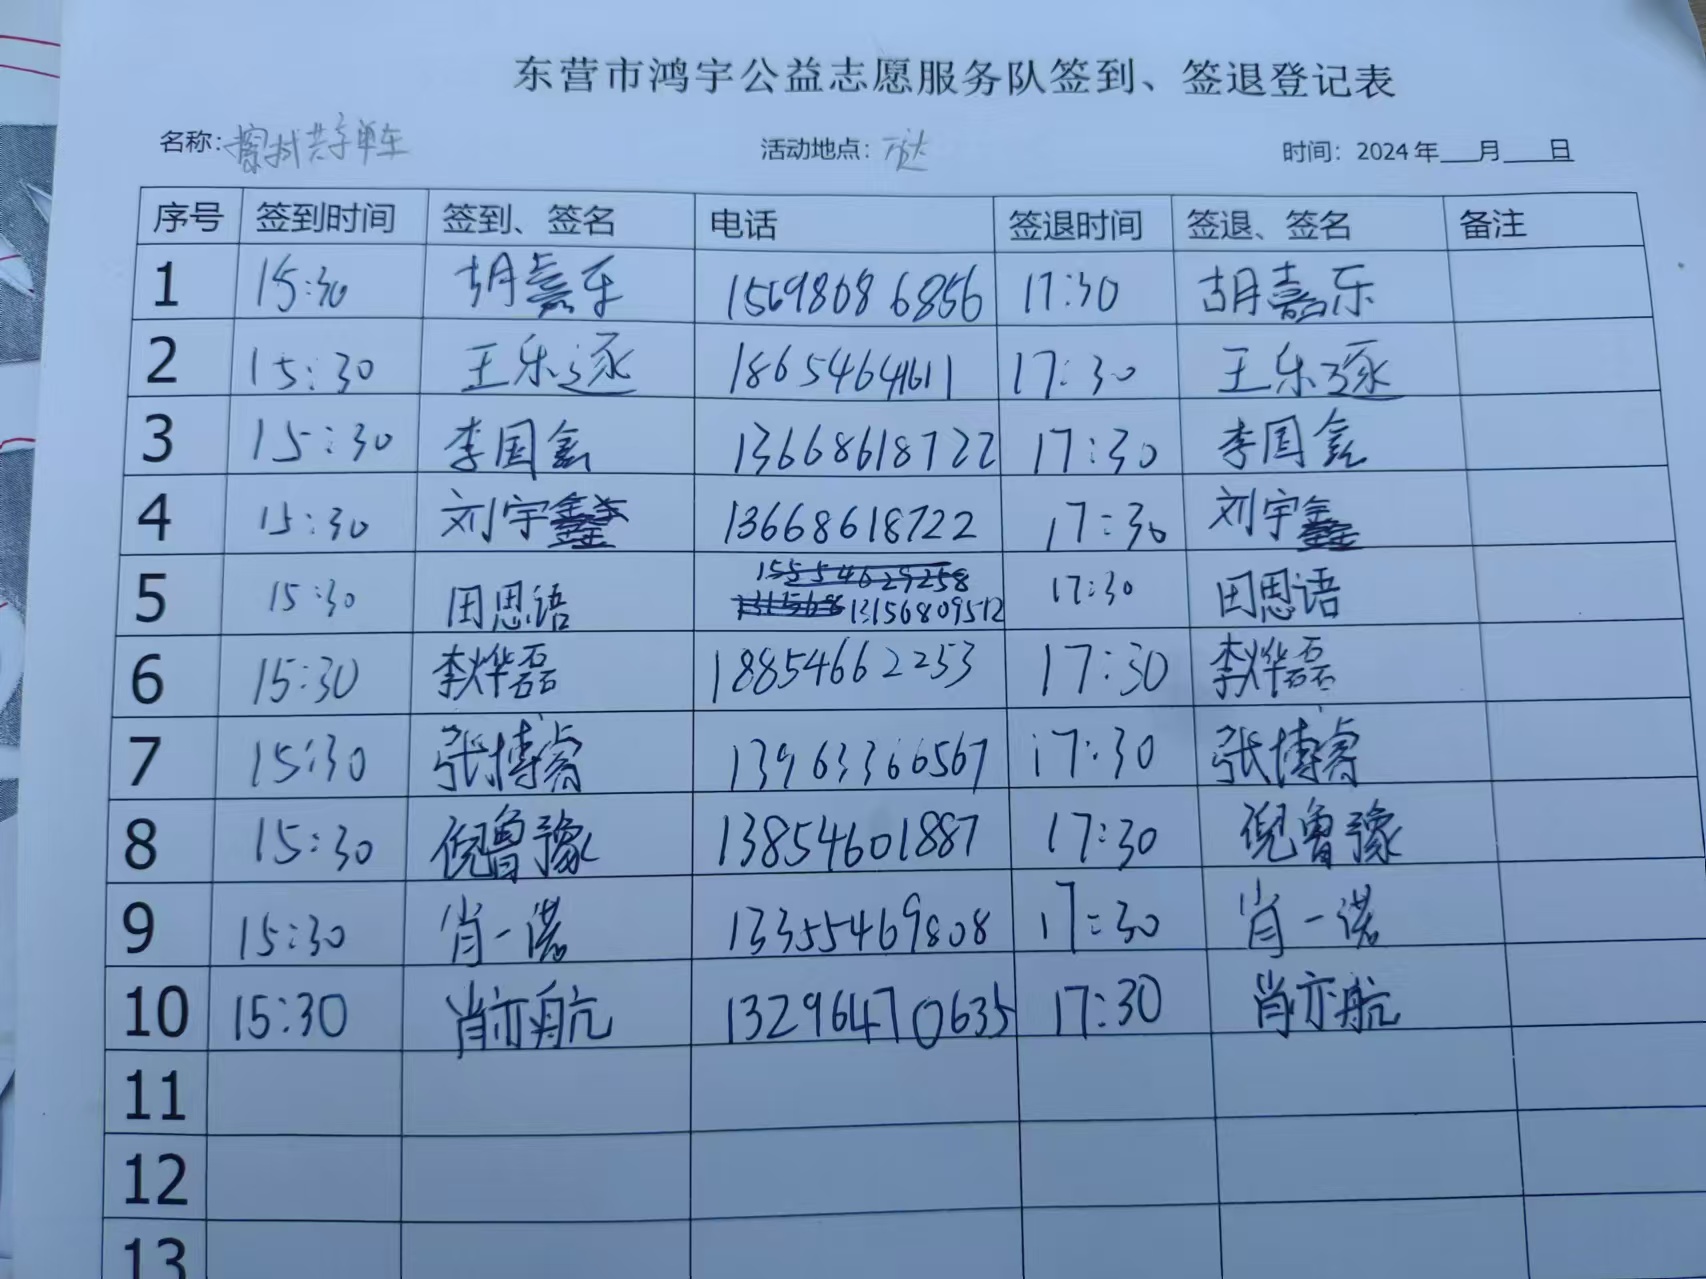 东营市鸿宇公益志愿服务队签到、签退登记表
名称：擦拭共享单车 活动地点：万达 时间：2024年___月___日
序号 签到时间 签到、签名 电话 签退时间 签退、签名 备注
1 15:30 胡嘉乐 15698086856 17:30 胡嘉乐
2 15:30 王乐逐 18654641611 17:30 王乐逐
3 15:30 李国鑫 13668618722 17:30 李国鑫
4 15:30 刘宇鑫 13668618722 17:30 刘宇鑫
5 15:30 田思语 13156809512 17:30 田思语
6 15:30 李烨磊 18854662253 17:30 李烨磊
7 15:30 张博睿 13963366567 17:30 张博睿
8 15:30 倪鲁豫 13854601887 17:30 倪鲁豫
9 15:30 肖一诺 13355469808 17:30 肖一诺
10 15:30 肖亦航 13296470635 17:30 肖亦航
11
12
13